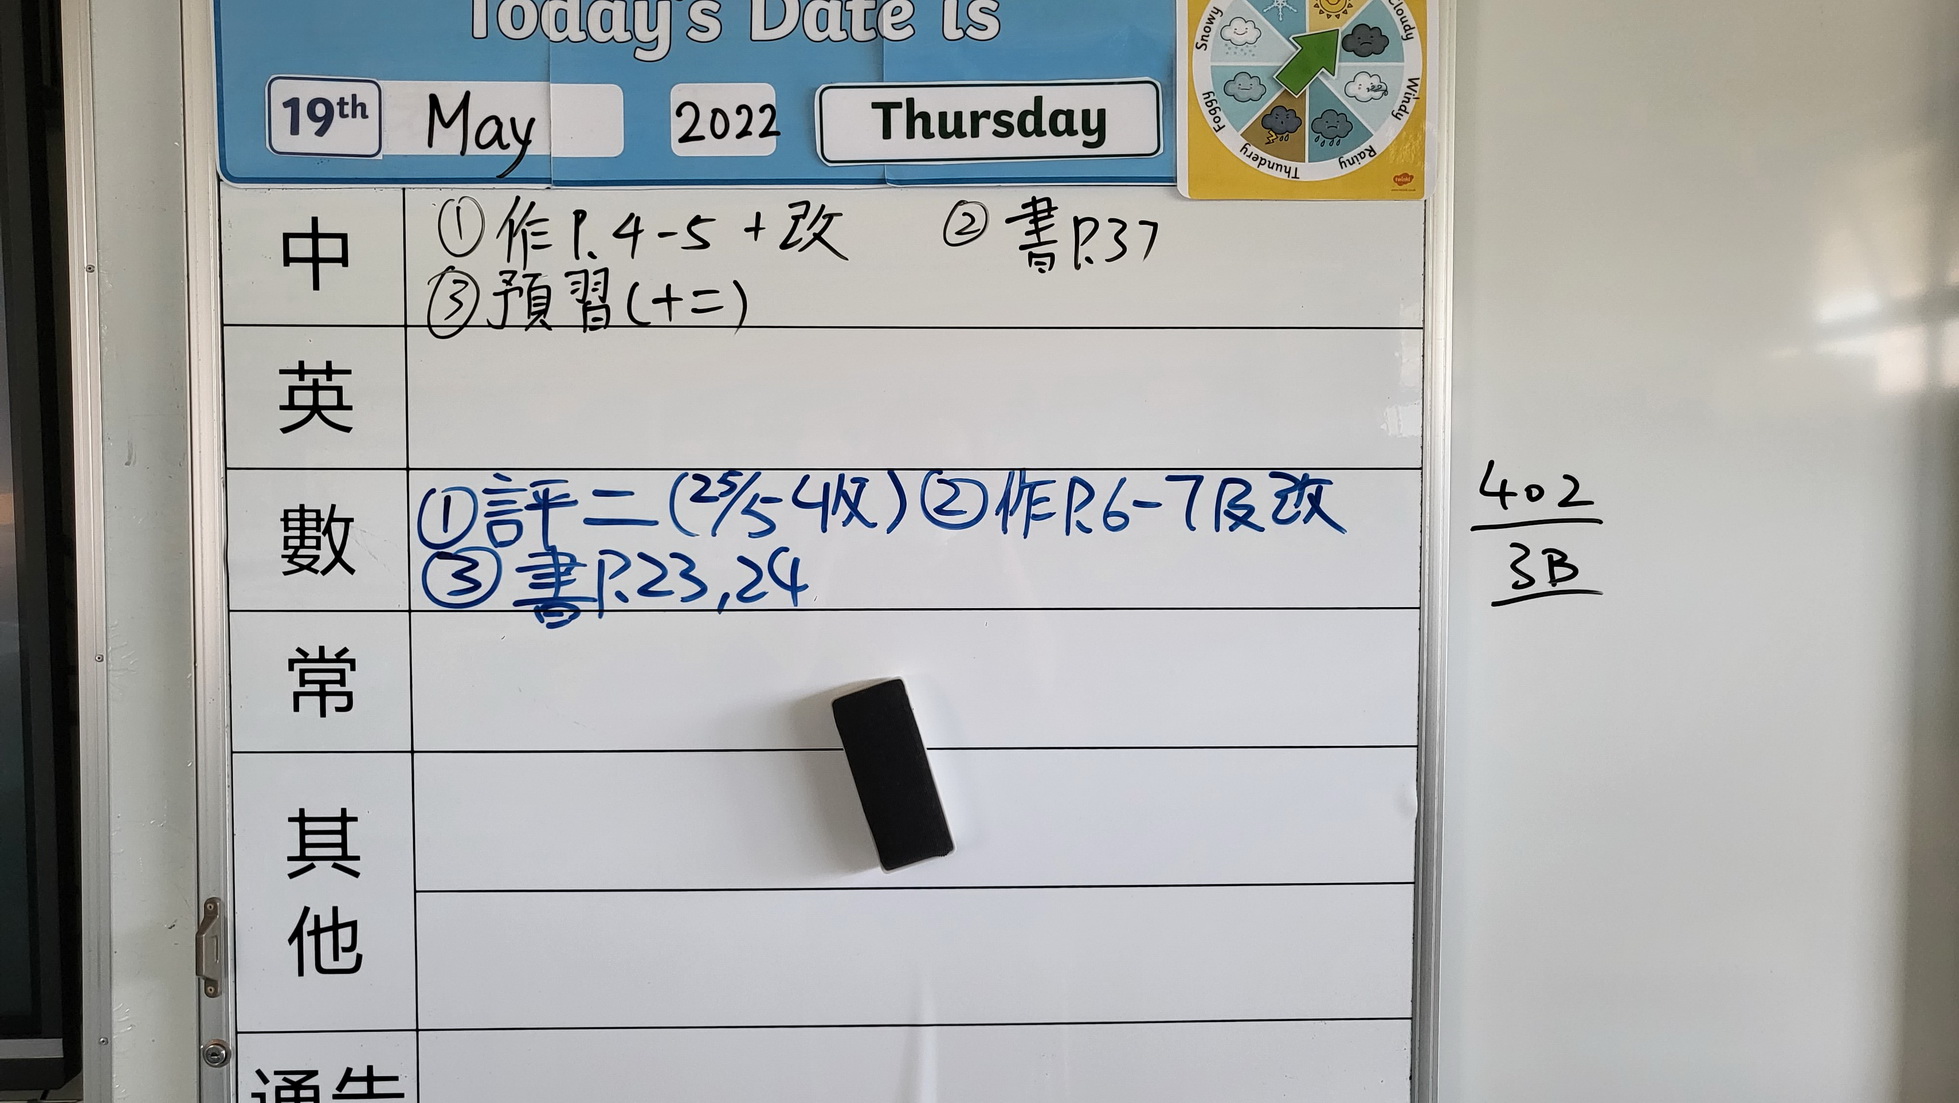 Today's Date is
19th May 2022 Thursday
Snowy Cloudy Windy Rainy Thundery Foggy
中 ①作P.4-5+改 ②書P.37
③預習(十二)
英
數 ①評二(25/5-4收)②作P.6-7及改
③書P.23,24
402
3B
常
其他
通告